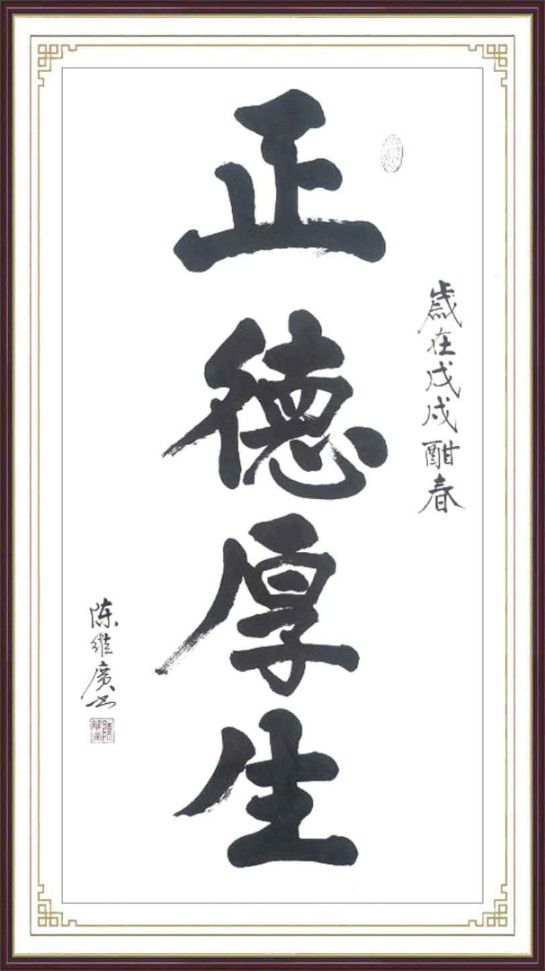 歲在戊戌酣春
正德厚生
陈維廣书